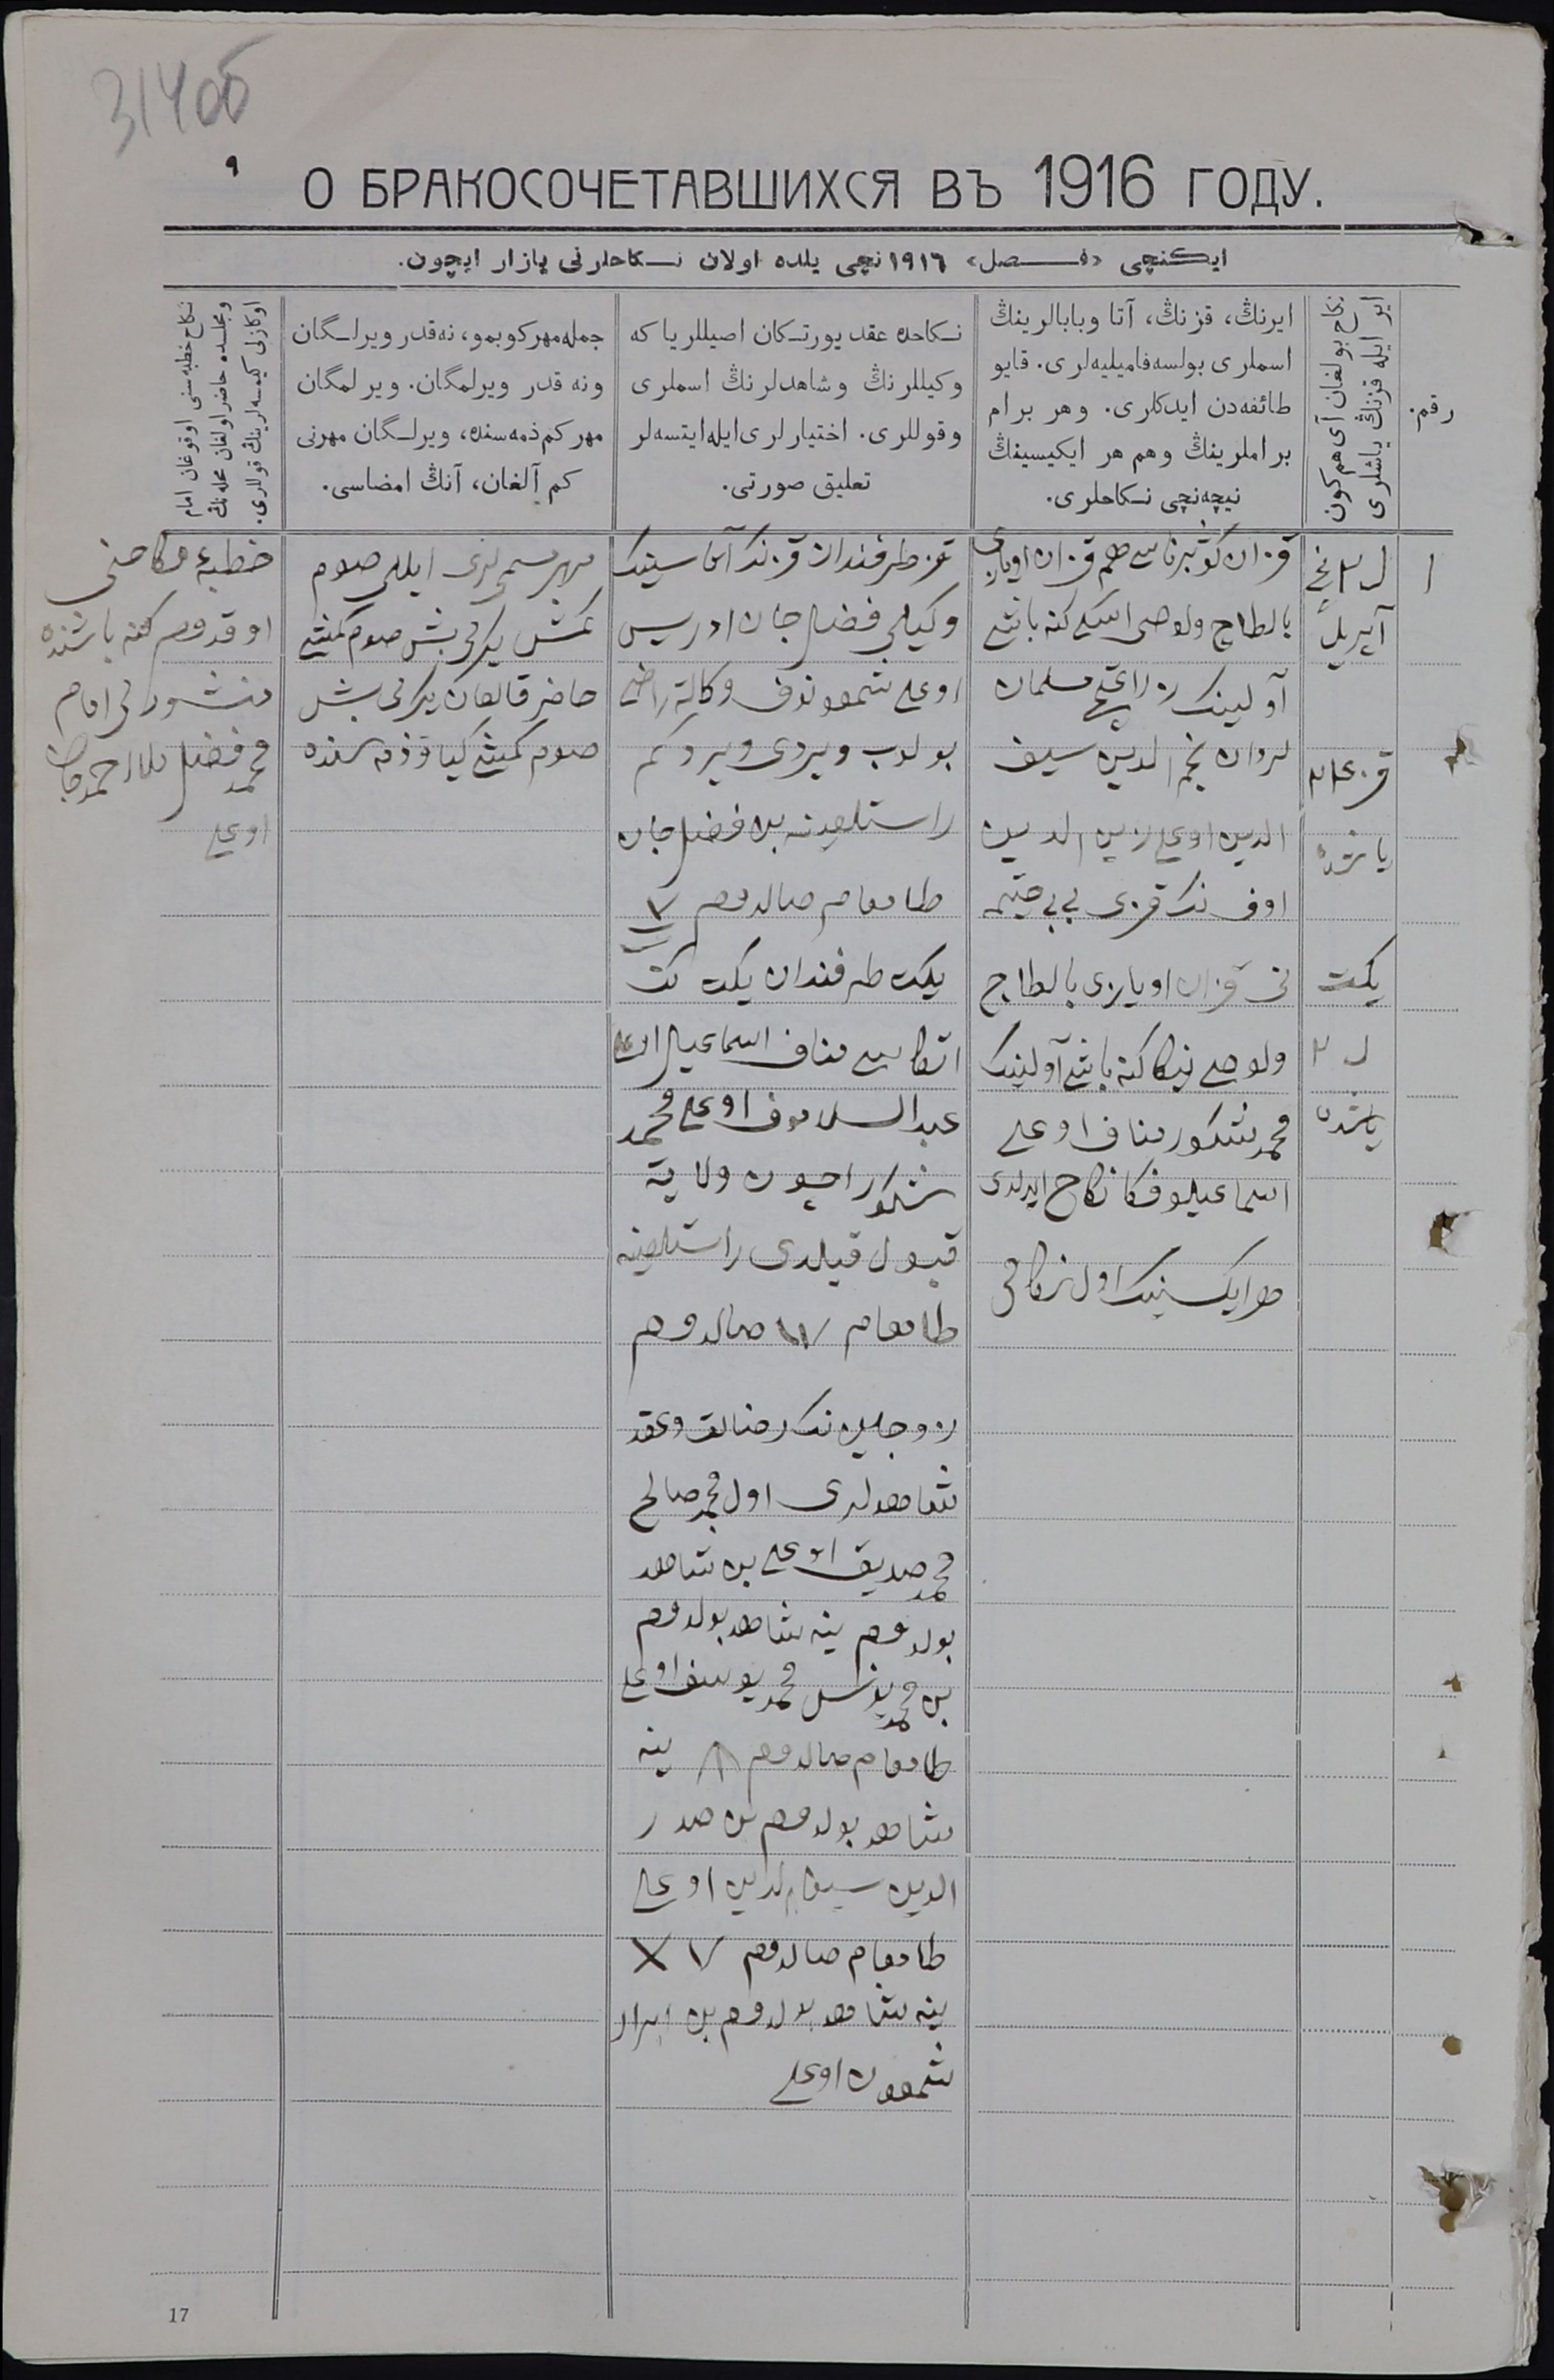 314об
٩
О БРАКОСОЧЕТАВШИХСЯ ВЪ 1916 ГОДУ.
ایكنچی «فصل» ١٩١٦ نچی یلده اولان نكاحلرنی یازار ایچون.
رقم.
نكاح بولغان آی هم كون
ایر ایله قزنڭ یاشلری
ایرنڭ، قزنڭ، آتا وبابالرینڭ
اسملری بولسه فامیلیه‌لری. قایو
طائفه‌دن ایدكلری. وهر برام
براملرینڭ وهم هر ایكیسینڭ
نیچه‌نچی نكاحلری.
نكاحده عقد یورتكان اصیللر یا كه
وكیللرنڭ وشاهدلرنڭ اسملری
وقوللری. اختیارلری ایله ایتسه‌لر
تعلیق صورتی.
جمله مهر كوبمو، نه قدر ویرلگان
ونه قدر ویرلمگان. ویرلمگان
مهر كم ذمه‌سنده، ویرلگان مهرنی
كم آلغان، آنڭ امضاسی.
نكاح خطبه‌سنی اوقوغان امام
ومجلسده حاضر اولغان محله‌نڭ
اوكازنی كیمسه‌لرینڭ قوللری.
١
آپریل
قز
یاشده
یكت
یاشده
قزان گوبیرناسی هم قزان اویازی
بالطاچ ولوصی اسكی كنه باشی
آولینك مسلمان
نجم الدین سیف
الدین اوغلی زین الدین
اوف نك قزی بی بی
نی قزان اویازی بالطاچ
ولوصی كنه باشی آولینك
محمدشكور مناف اوغلی
اسماعیلوف كا نكاح ایدلدی
هر ایكسینك اول نكاحی
قز طرفندان قزنك آناسینك
وكیلی فضل جان ادریس
اوغلی شمعونوف وكالة راضی
بولوب ویردی ویردكم
راستلغینه بن فضل جان
طامغام صالدوم
یكت طرفندان یكت نك
اتكاسی مناف اسماعیل
عبدالسلاموف اوغلی محمد
شكور اچون ولایة
قبول قیلدی راستلغینه
طامغام صالدوم
زوجلین نك رضالق وعقد
شاهدلری اول محمدصالح
محمدصدیق اوغلی بن شاهد
بولدوم ینه شاهد بولدوم
بن محمدیونس محمدیوسف اوغلی
طامغام صالدوم ینه
شاهد بولدوم بن صدر
الدین سیف الدین اوغلی
طامغام صالدوم
ینه شاهد بولدوم بن ابرار
شمعون اوغلی
مهر مسمی لری ایللی صوم
كمش یكرمی بش صوم كمشی
حاضر قالغان یكرمی بش
صوم كمشی كیاو ذمه سنده
خطبهٔ نكاحنی
اوقدوم كنه باشنده
منشورلی امام
محمدفضل ملا احمدجان
اوغلی
17